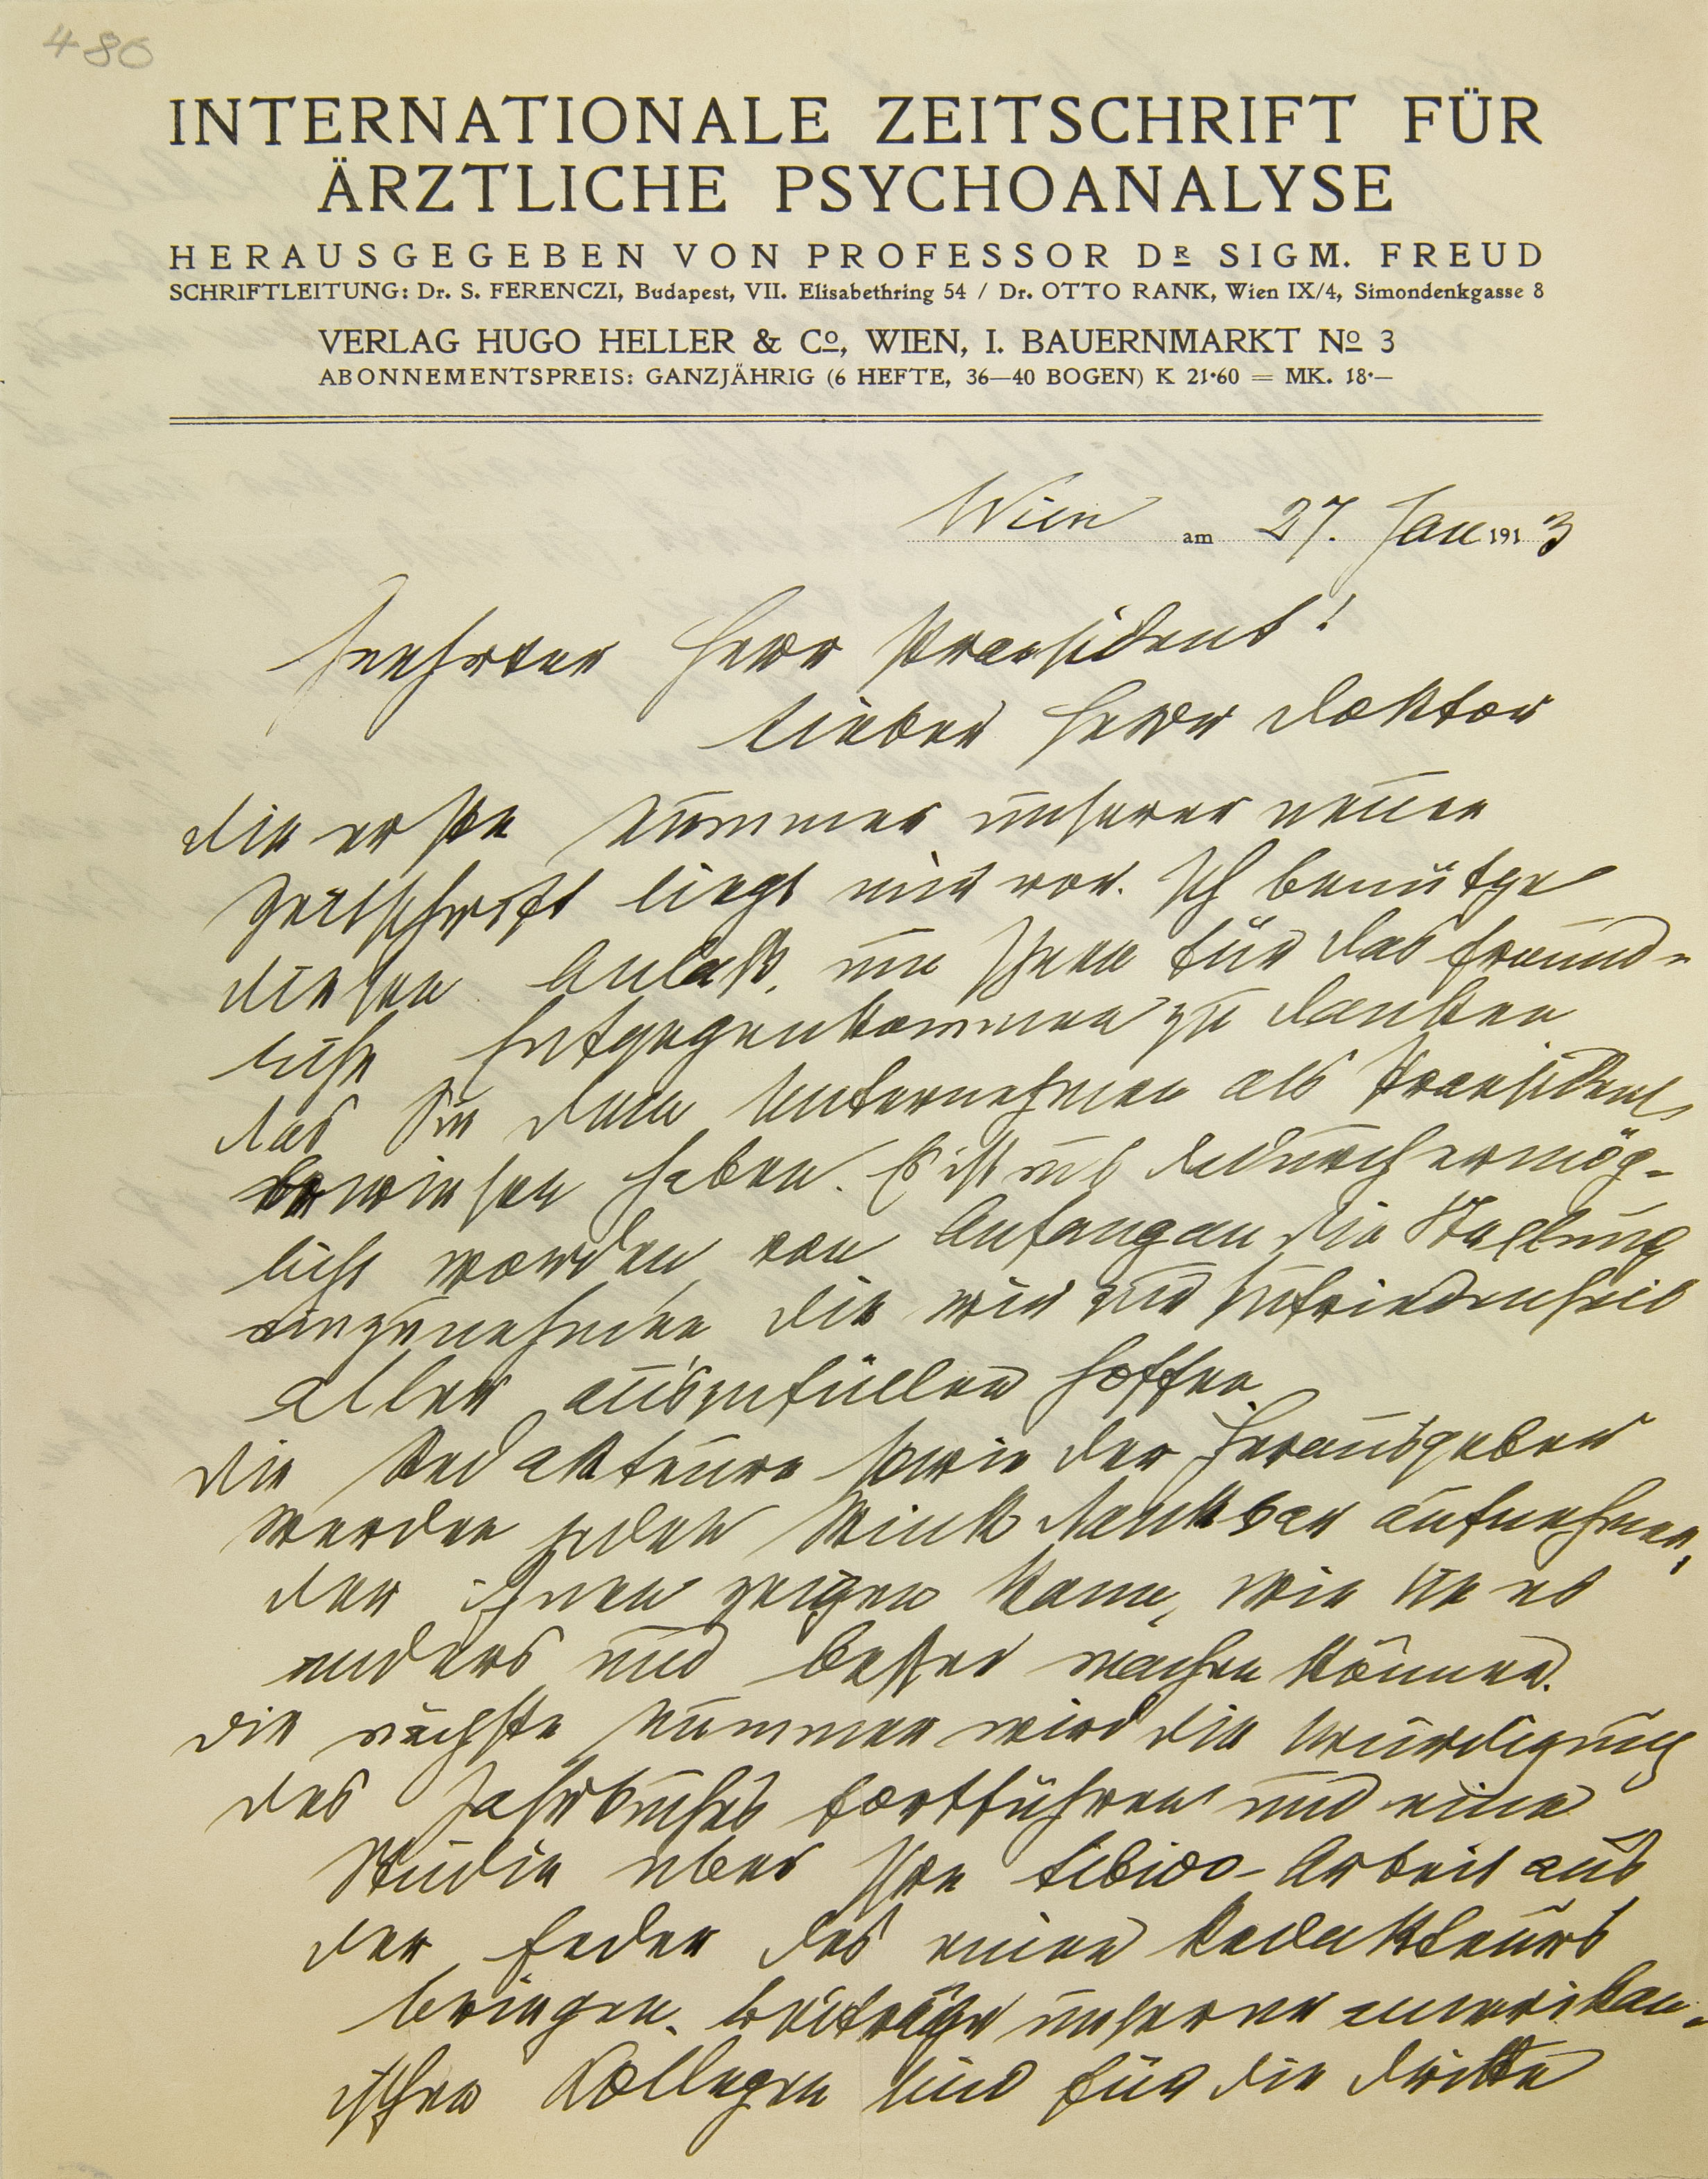 480
INTERNATIONALE ZEITSCHRIFT FÜR
ÄRZTLICHE PSYCHOANALYSE
HERAUSGEGEBEN VON PROFESSOR DR SIGM. FREUD
SCHRIFTLEITUNG: Dr. S. FERENCZI, Budapest, VII. Elisabethring 54 / Dr. OTTO RANK, Wien IX/4, Simondenkgasse 8
VERLAG HUGO HELLER & Co, WIEN, I. BAUERNMARKT No 3
ABONNEMENTSPREIS: GANZJÄHRIG (6 HEFTE, 36—40 BOGEN) K 21·60 = MK. 18·—
Wien am 27. Jan 1913
Geehrter Herr Praesident!
Lieber Herr Doktor
Die erste Nummer unserer neuen
Zeitschrift liegt mir vor. Ich benütze
diesen Anlaß, um Ihnen für das freund-
liche Entgegenkommen zu danken
das Sie dem Unternehmen als Praesident
bewiesen haben. Es ist uns dadurch ermög-
licht worden, von Anfang an die Stellung
einzunehmen die wir zur Zufriedenheit
aller auszufüllen hoffen.
Die Redakteure sowie der Herausgeber
werden jeden Wink dankbar aufnehmen,
der ihnen zeigen kann, wie sie es
anders und besser machen können.
Die nächste Nummer wird die Würdigung
des Jahrbuches fortführen und eine
Studie über Ihre Libido-Arbeit aus
der Feder des einen Redakteurs
bringen. Beiträge unserer amerikan-
ischen Collegen sind für die dritte